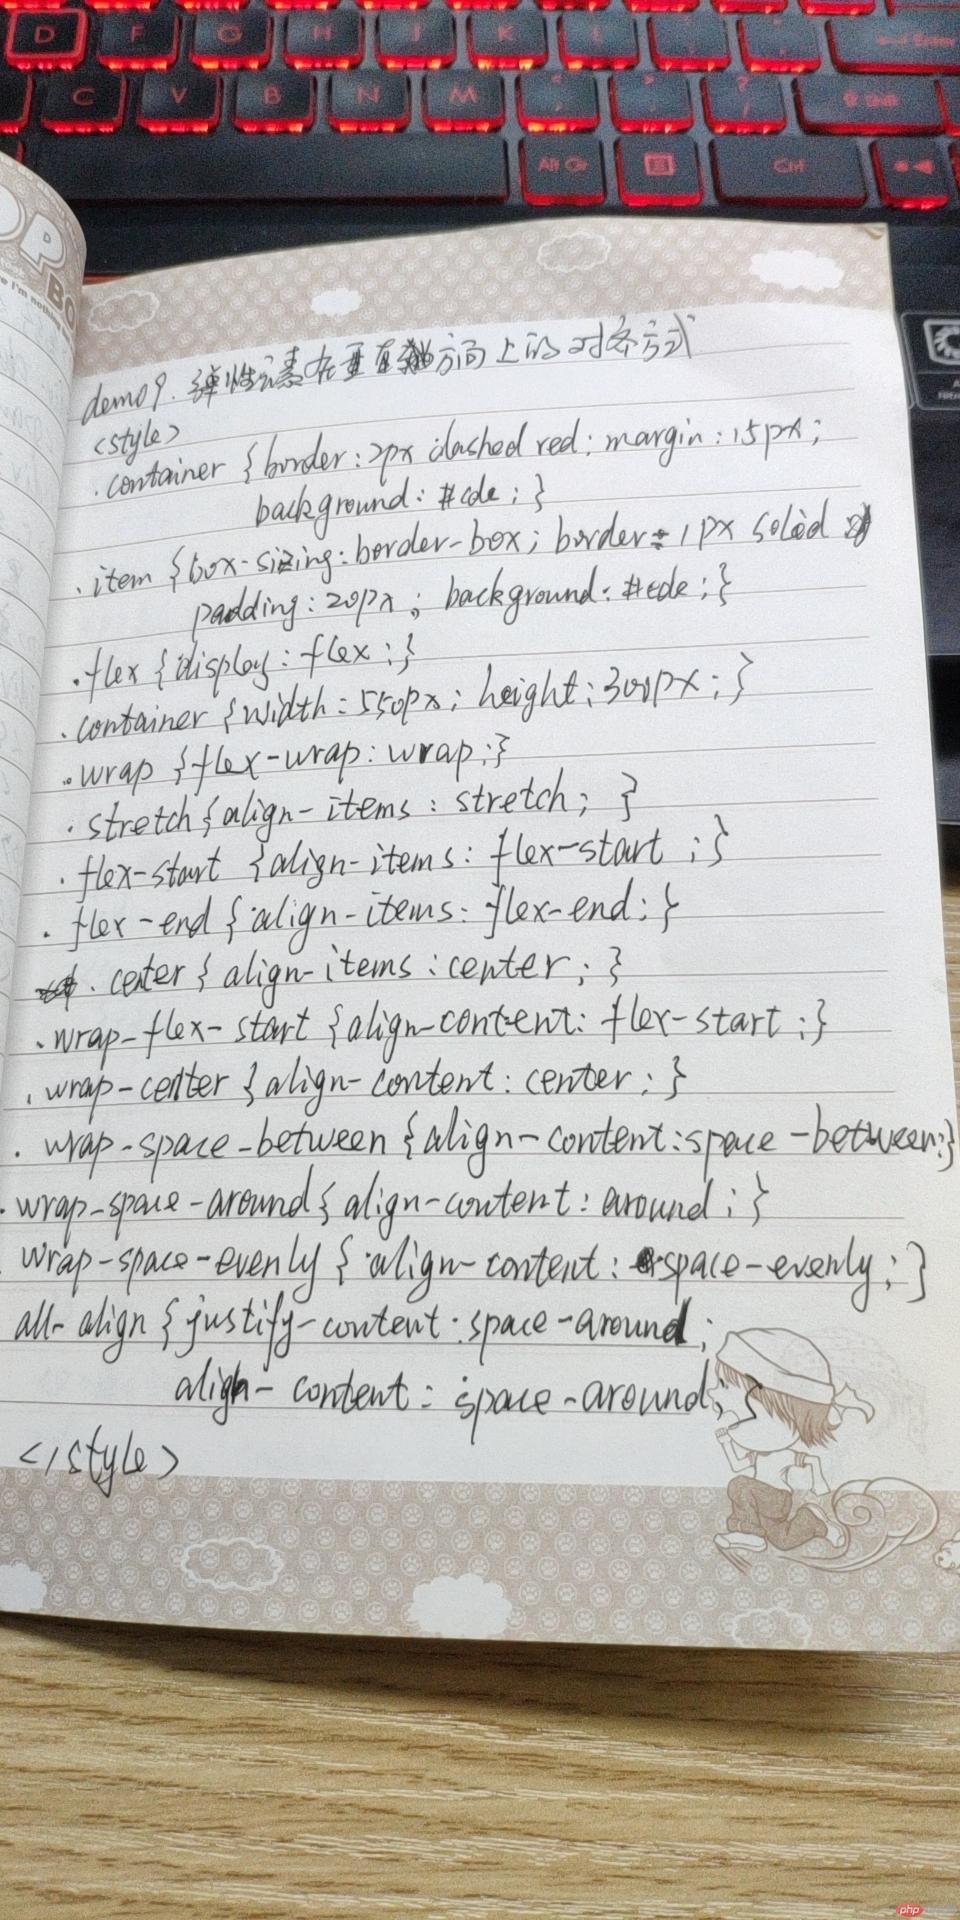 D F G H J K L
Enter
C V B N M
Alt Gr Ctrl
OP
BO
e I'm nothing
demo9. 弹性元素在垂直方向上的对齐方式
<style>
.container {border:2px dashed red; margin:15px;
background: #cde;}
.item {box-sizing:border-box; border:1px solid
padding:20px; background: #cde;}
.flex {display: flex;}
.container {width:550px; height:300px;}
.wrap {flex-wrap: wrap;}
.stretch{align-items: stretch; }
.flex-start {align-items: flex-start ;}
.flex-end {align-items: flex-end;}
.center { align-items :center; }
.wrap-flex-start {align-content: flex-start ;}
.wrap-center {align-content: center;}
.wrap-space-between {align-content:space-between;}
.wrap-space-around{ align-content: around; }
wrap-space-evenly { align-content: space-evenly; }
all-align {justify-content:space-around;
align-content: space-around;}
</style>
php